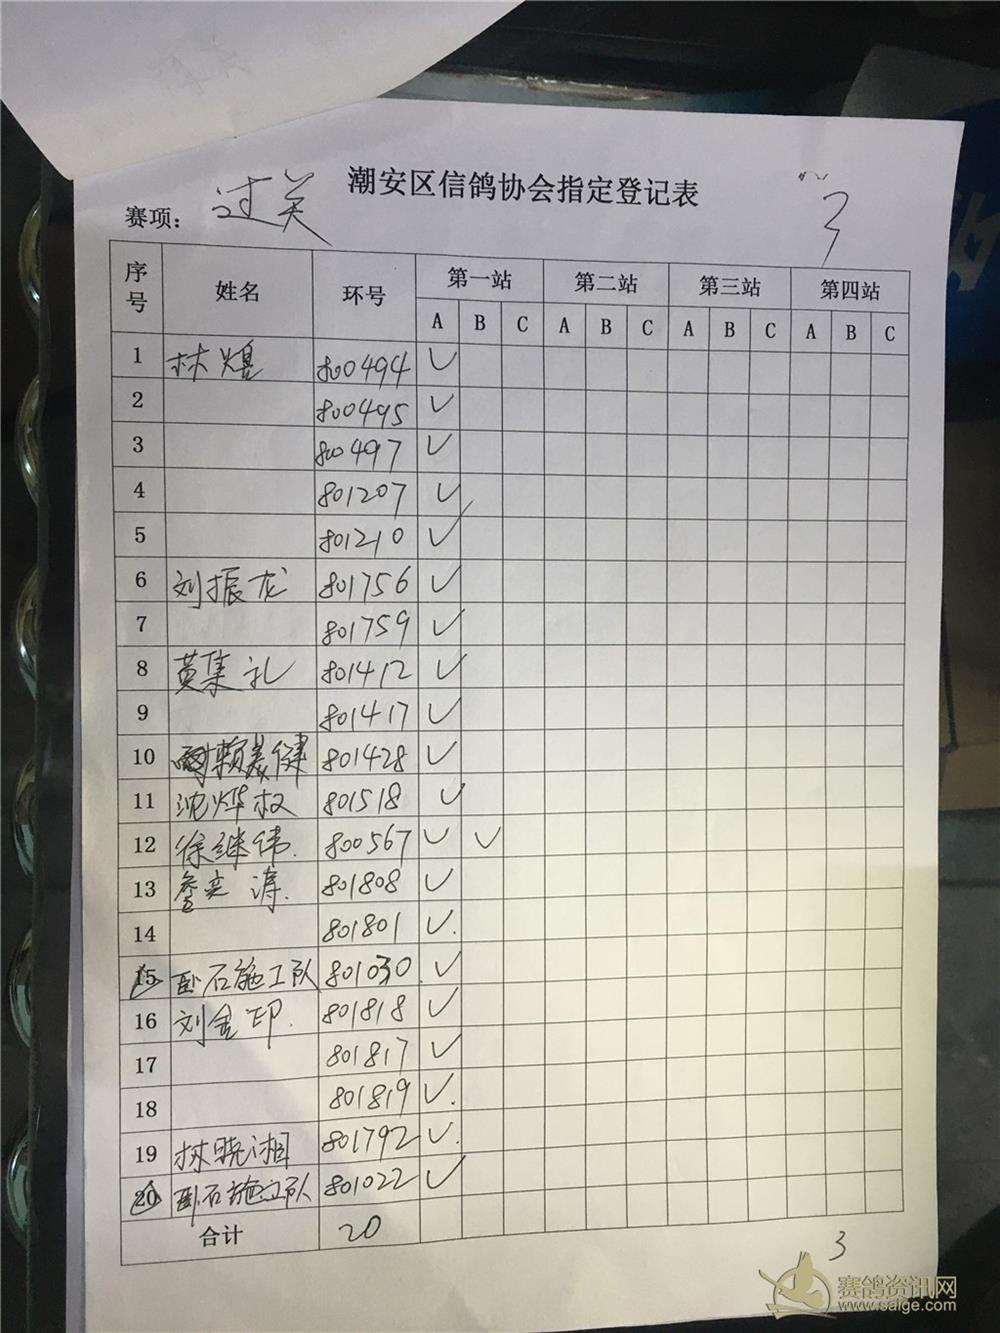 潮安区信鸽协会指定登记表
赛项： 过关 3
序号 姓名 环号 第一站 第二站 第三站 第四站
A B C A B C A B C A B C
1 林煜 800494 ✓
2 800495 ✓
3 800497 ✓
4 801207 ✓
5 801210 ✓
6 刘振龙 801756 ✓
7 801759 ✓
8 黄集礼 801412 ✓
9 801417 ✓
10 赖美健 801428 ✓
11 沈烨权 801518 ✓
12 徐继伟. 800567 ✓ ✓
13 詹奕涛. 801808 ✓
14 801801 ✓.
15 卧石施工队 801030. ✓
16 刘金印. 801818 ✓
17 801817 ✓
18 801819 ✓.
19 林晓湘 801792 ✓.
20 卧石施工队 801022 ✓
合计 20
3
赛鸽资讯网
www.saige.com